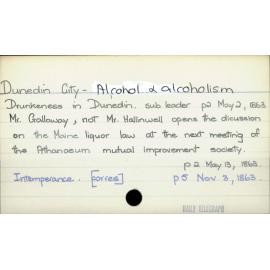 Dunedin City - Alcohol & alcoholism
Drunkeness in Dunedin. sub leader p2 May 2, 1863.
Mr. Galloway, not Mr. Hallinwell opens the dicussion
on the Maine liquor law at the next meeting of
the Athanaeum mutual improvement society.
p2 May 13, 1863.
Intemperance. [corres] p5 Nov. 3, 1863.
DAILY TELEGRAPH